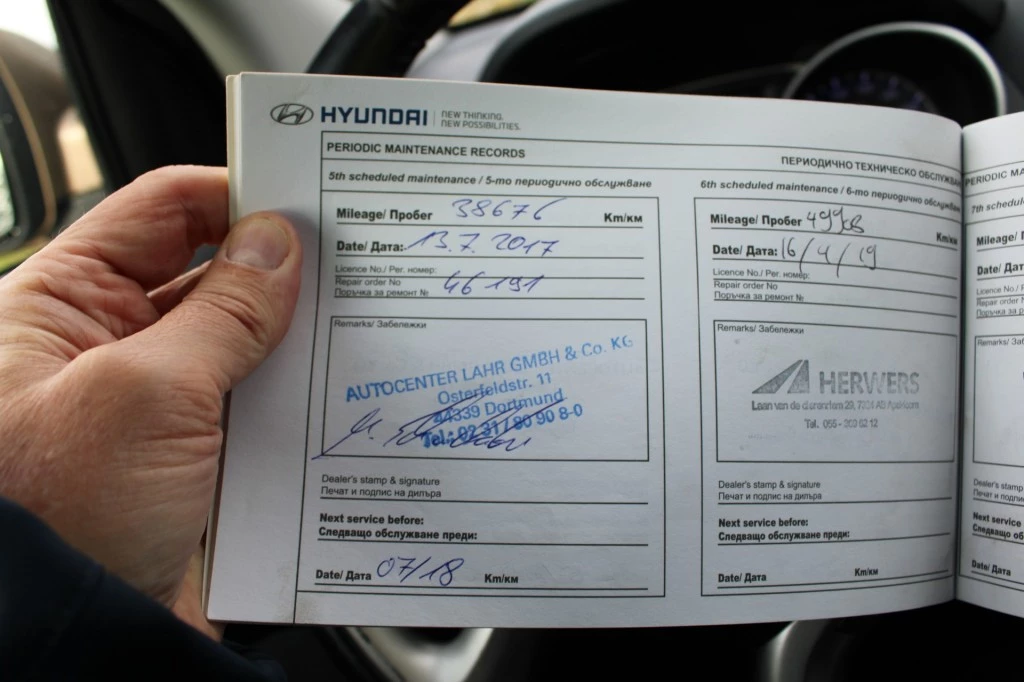 HYUNDAI
NEW THINKING.
NEW POSSIBILITIES.
PERIODIC MAINTENANCE RECORDS
ПЕРИОДИЧНО ТЕХНИЧЕСКО
5th scheduled maintenance / 5-то периодично обслужване
Mileage/ Пробег 38676 Km/км
Date/ Дата: 13.7.2017
Licence No./ Рег. номер:
Repair order No
Поръчка за ремонт № 46191
Remarks/ Забележки
AUTOCENTER LAHR GMBH & Co. KG
Osterfeldstr. 11
44339 Dortmund
Tel.: 02 31 / 80 90 8-0
Dealer's stamp & signature
Печат и подпис на дилъра
Next service before:
Следващо обслужване преди:
Date/ Дата 07/18 Km/км
6th scheduled maintenance / 6-то периодично
Mileage/ Пробег Km/км
Date/ Дата: 16/4/19
Licence No./ Рег. номер:
Repair order No
Поръчка за ремонт №
Remarks/ Забележки
HERWERS
Laan van de Apeldoorn
Tel. 055 -
Dealer's stamp & signature
Печат и подпис на дилъра
Next service before:
Следващо обслужване преди:
Date/ Дата Km/км
PERIODIC
7th
Mileage/
Date/
Licence No./
Repair order No
Поръчка за
Remarks/
Dealer's stamp
Печат и
Next service
Следващо
Date/ Дата